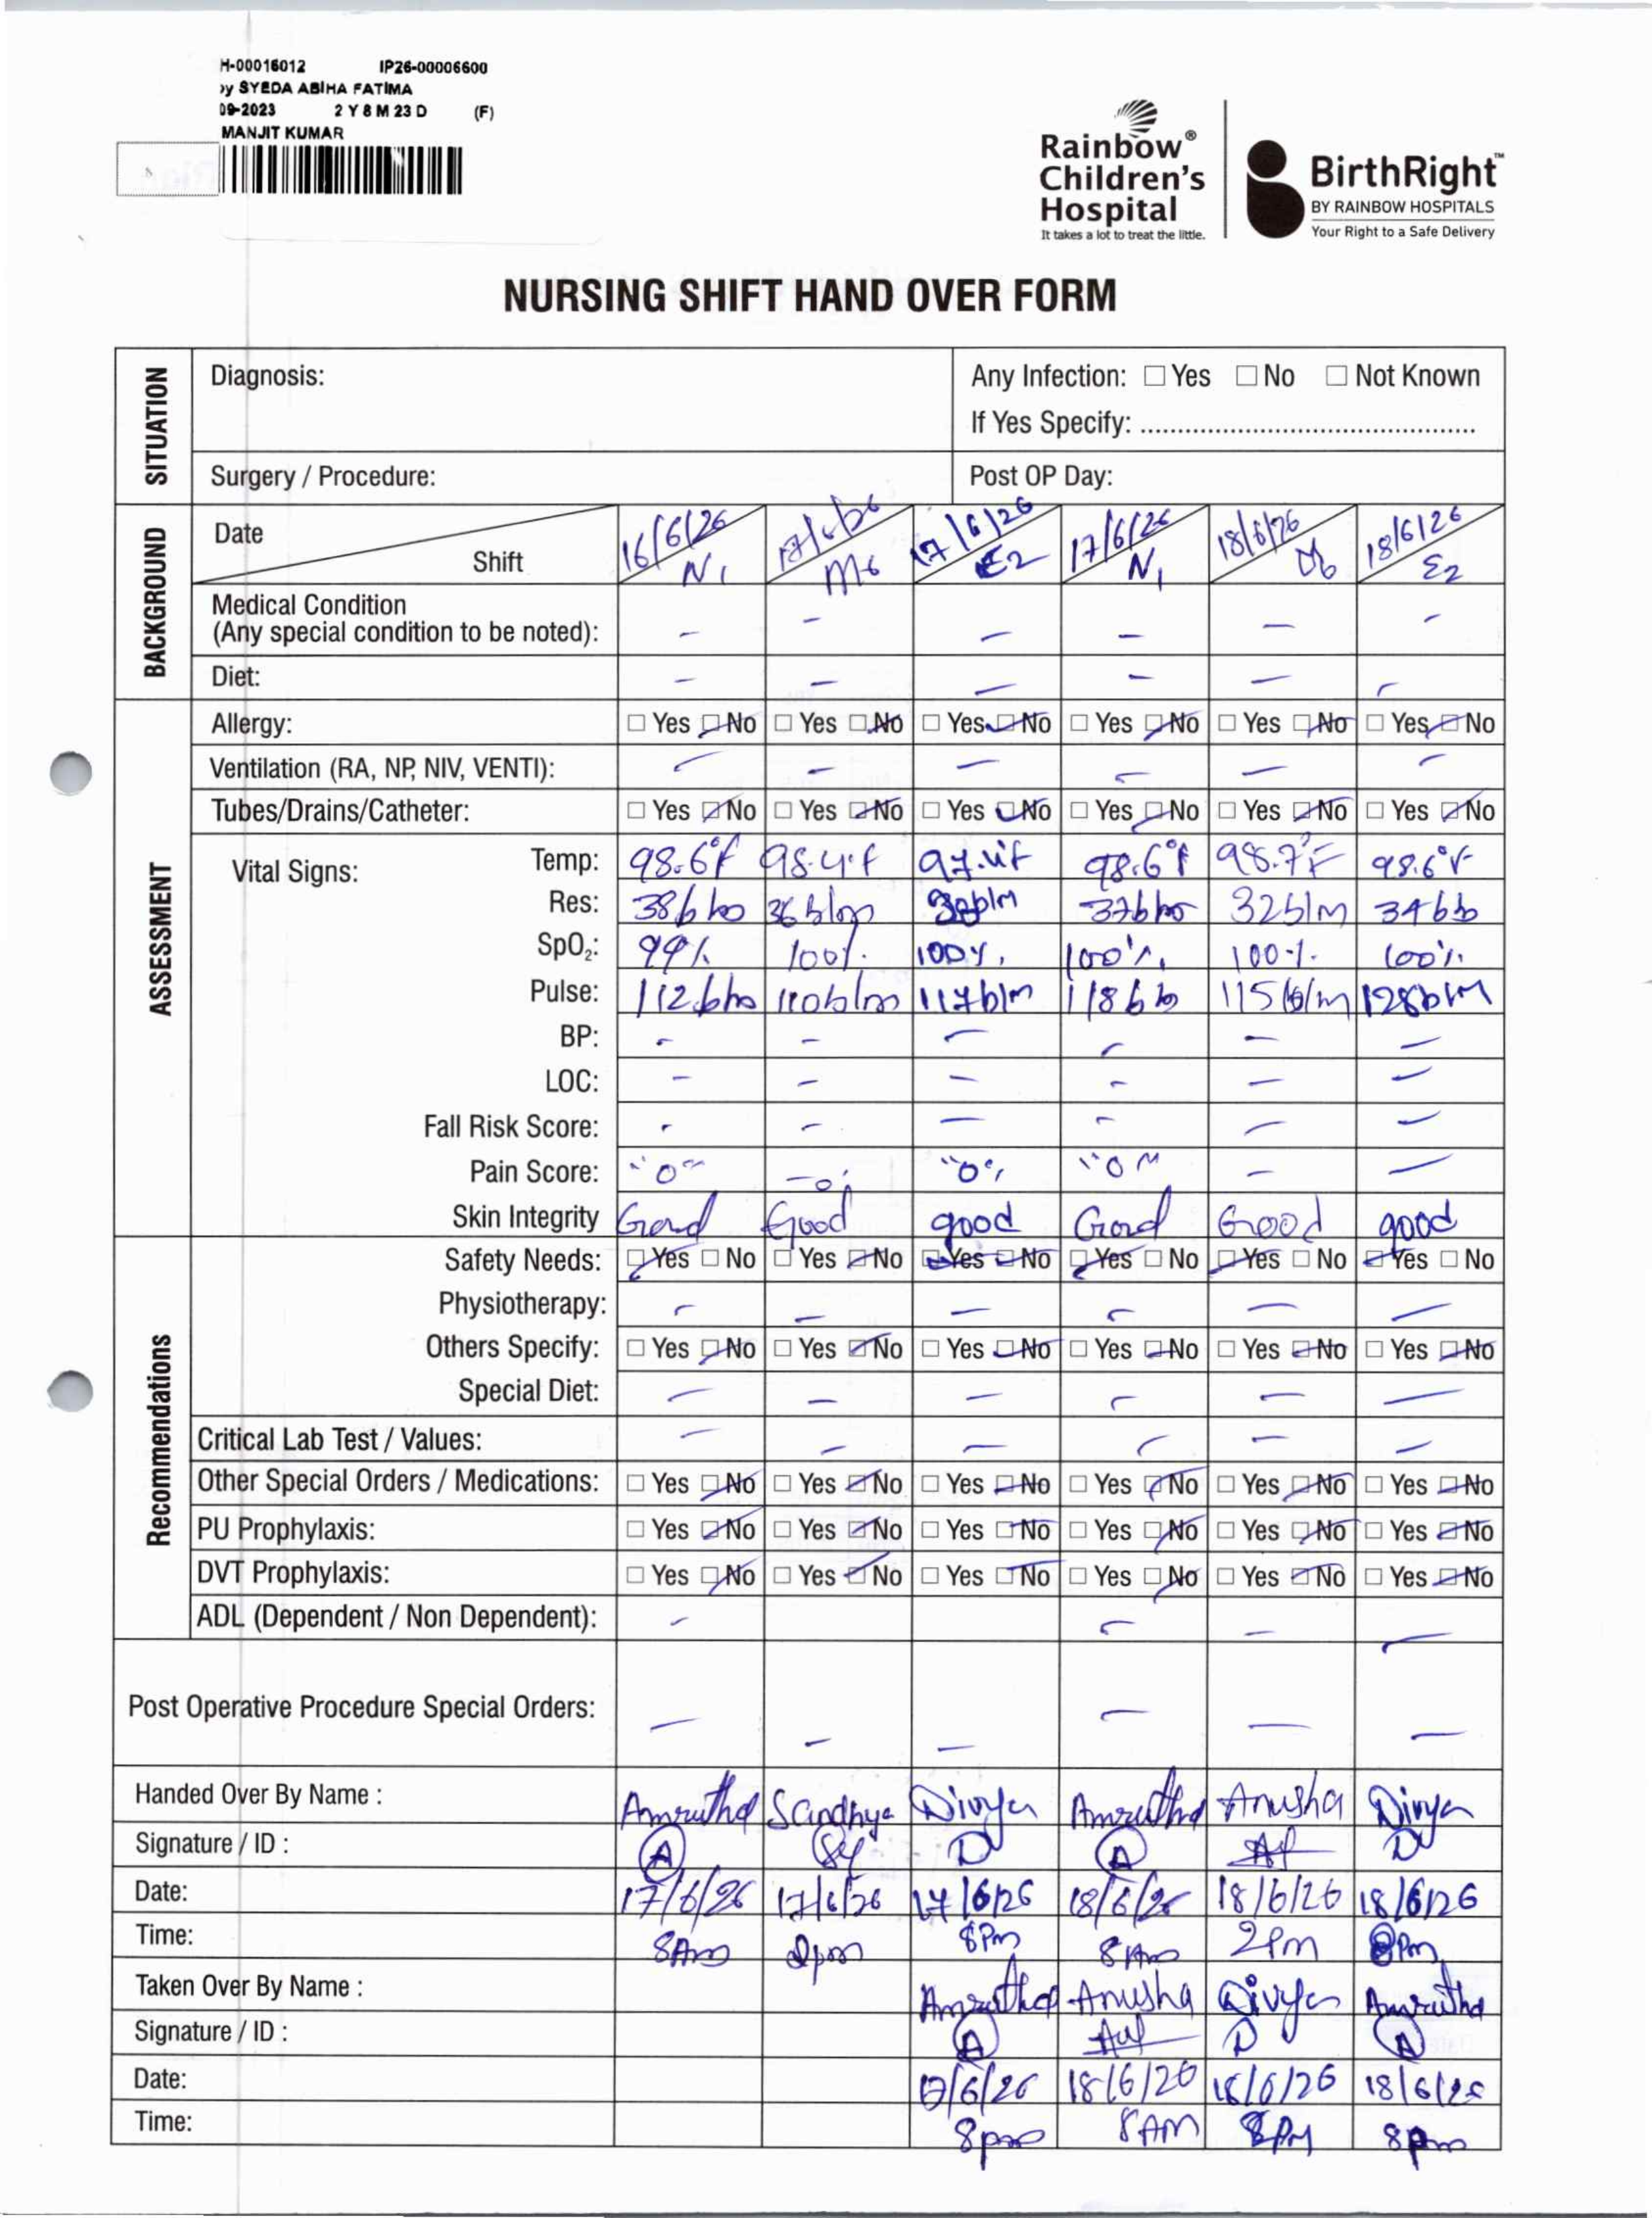 H-00016012 IP26-00006600
by SYEDA ABIHA FATIMA
09-2023 2 Y 8 M 23 D (F)
MANJIT KUMAR
Rainbow®
Children's
Hospital
It takes a lot to treat the little.
BirthRight™
BY RAINBOW HOSPITALS
Your Right to a Safe Delivery
NURSING SHIFT HAND OVER FORM
SITUATION
Diagnosis:
Any Infection: ☐ Yes ☐ No ☐ Not Known
If Yes Specify: ............................................
Surgery / Procedure:
Post OP Day:
BACKGROUND
Date 16/6/26 17/6/26 17/6/26 17/6/26 18/6/26 18/6/26
Shift N1 M6 E2 N1 E2
Medical Condition
(Any special condition to be noted): – – – – – –
Diet: – – – – – –
ASSESSMENT
Allergy: ☐ Yes ☑ No ☐ Yes ☑ No ☐ Yes ☑ No ☐ Yes ☑ No ☐ Yes ☑ No ☐ Yes ☑ No
Ventilation (RA, NP, NIV, VENTI): – – – – – –
Tubes/Drains/Catheter: ☐ Yes ☑ No ☐ Yes ☑ No ☐ Yes ☑ No ☐ Yes ☑ No ☐ Yes ☑ No ☐ Yes ☑ No
Vital Signs:
Temp: 98.6°f 98.4°f 97.4°f 98.6°f 98.7°F 98.6°F
Res: 38b/m 36b/m b/m 37b/m 32b/m 34b/m
SpO₂: 99% 100% 100% 100% 100% 100%
Pulse: 112b/m 110b/m 117b/m 118b/m 115b/m 128b/m
BP: – – – – – –
LOC: – – – – – –
Fall Risk Score: – – – – – –
Pain Score: "0" –0– "0" "0" – –
Skin Integrity Good Good good Good Good good
Recommendations
Safety Needs: ☑ Yes ☐ No ☐ Yes ☑ No ☑ Yes ☑ No ☑ Yes ☐ No ☑ Yes ☐ No ☑ Yes ☐ No
Physiotherapy: – – – – – –
Others Specify: ☐ Yes ☑ No ☐ Yes ☑ No ☐ Yes ☑ No ☐ Yes ☑ No ☐ Yes ☑ No ☐ Yes ☑ No
Special Diet: – – – – – –
Critical Lab Test / Values: – – – – – –
Other Special Orders / Medications: ☐ Yes ☑ No ☐ Yes ☑ No ☐ Yes ☑ No ☐ Yes ☑ No ☐ Yes ☑ No ☐ Yes ☑ No
PU Prophylaxis: ☐ Yes ☑ No ☐ Yes ☑ No ☐ Yes ☑ No ☐ Yes ☑ No ☐ Yes ☑ No ☐ Yes ☑ No
DVT Prophylaxis: ☐ Yes ☑ No ☐ Yes ☑ No ☐ Yes ☑ No ☐ Yes ☑ No ☐ Yes ☑ No ☐ Yes ☑ No
ADL (Dependent / Non Dependent): – – – –
Post Operative Procedure Special Orders: – – – – – –
Handed Over By Name : Amrutha Sandhya Divya Amrutha Anusha Divya
Signature / ID : A Sy D A D
Date: 17/6/26 17/6/26 17/6/26 18/6/26 18/6/26 18/6/26
Time: 8Am 2pm 8Pm 8Am 2Pm 8Pm
Taken Over By Name : Amrutha Anusha Divya Amrutha
Signature / ID : A D A
Date: 17/6/26 18/6/26 18/6/26 18/6/26
Time: 8pm 8AM 8PM 8pm